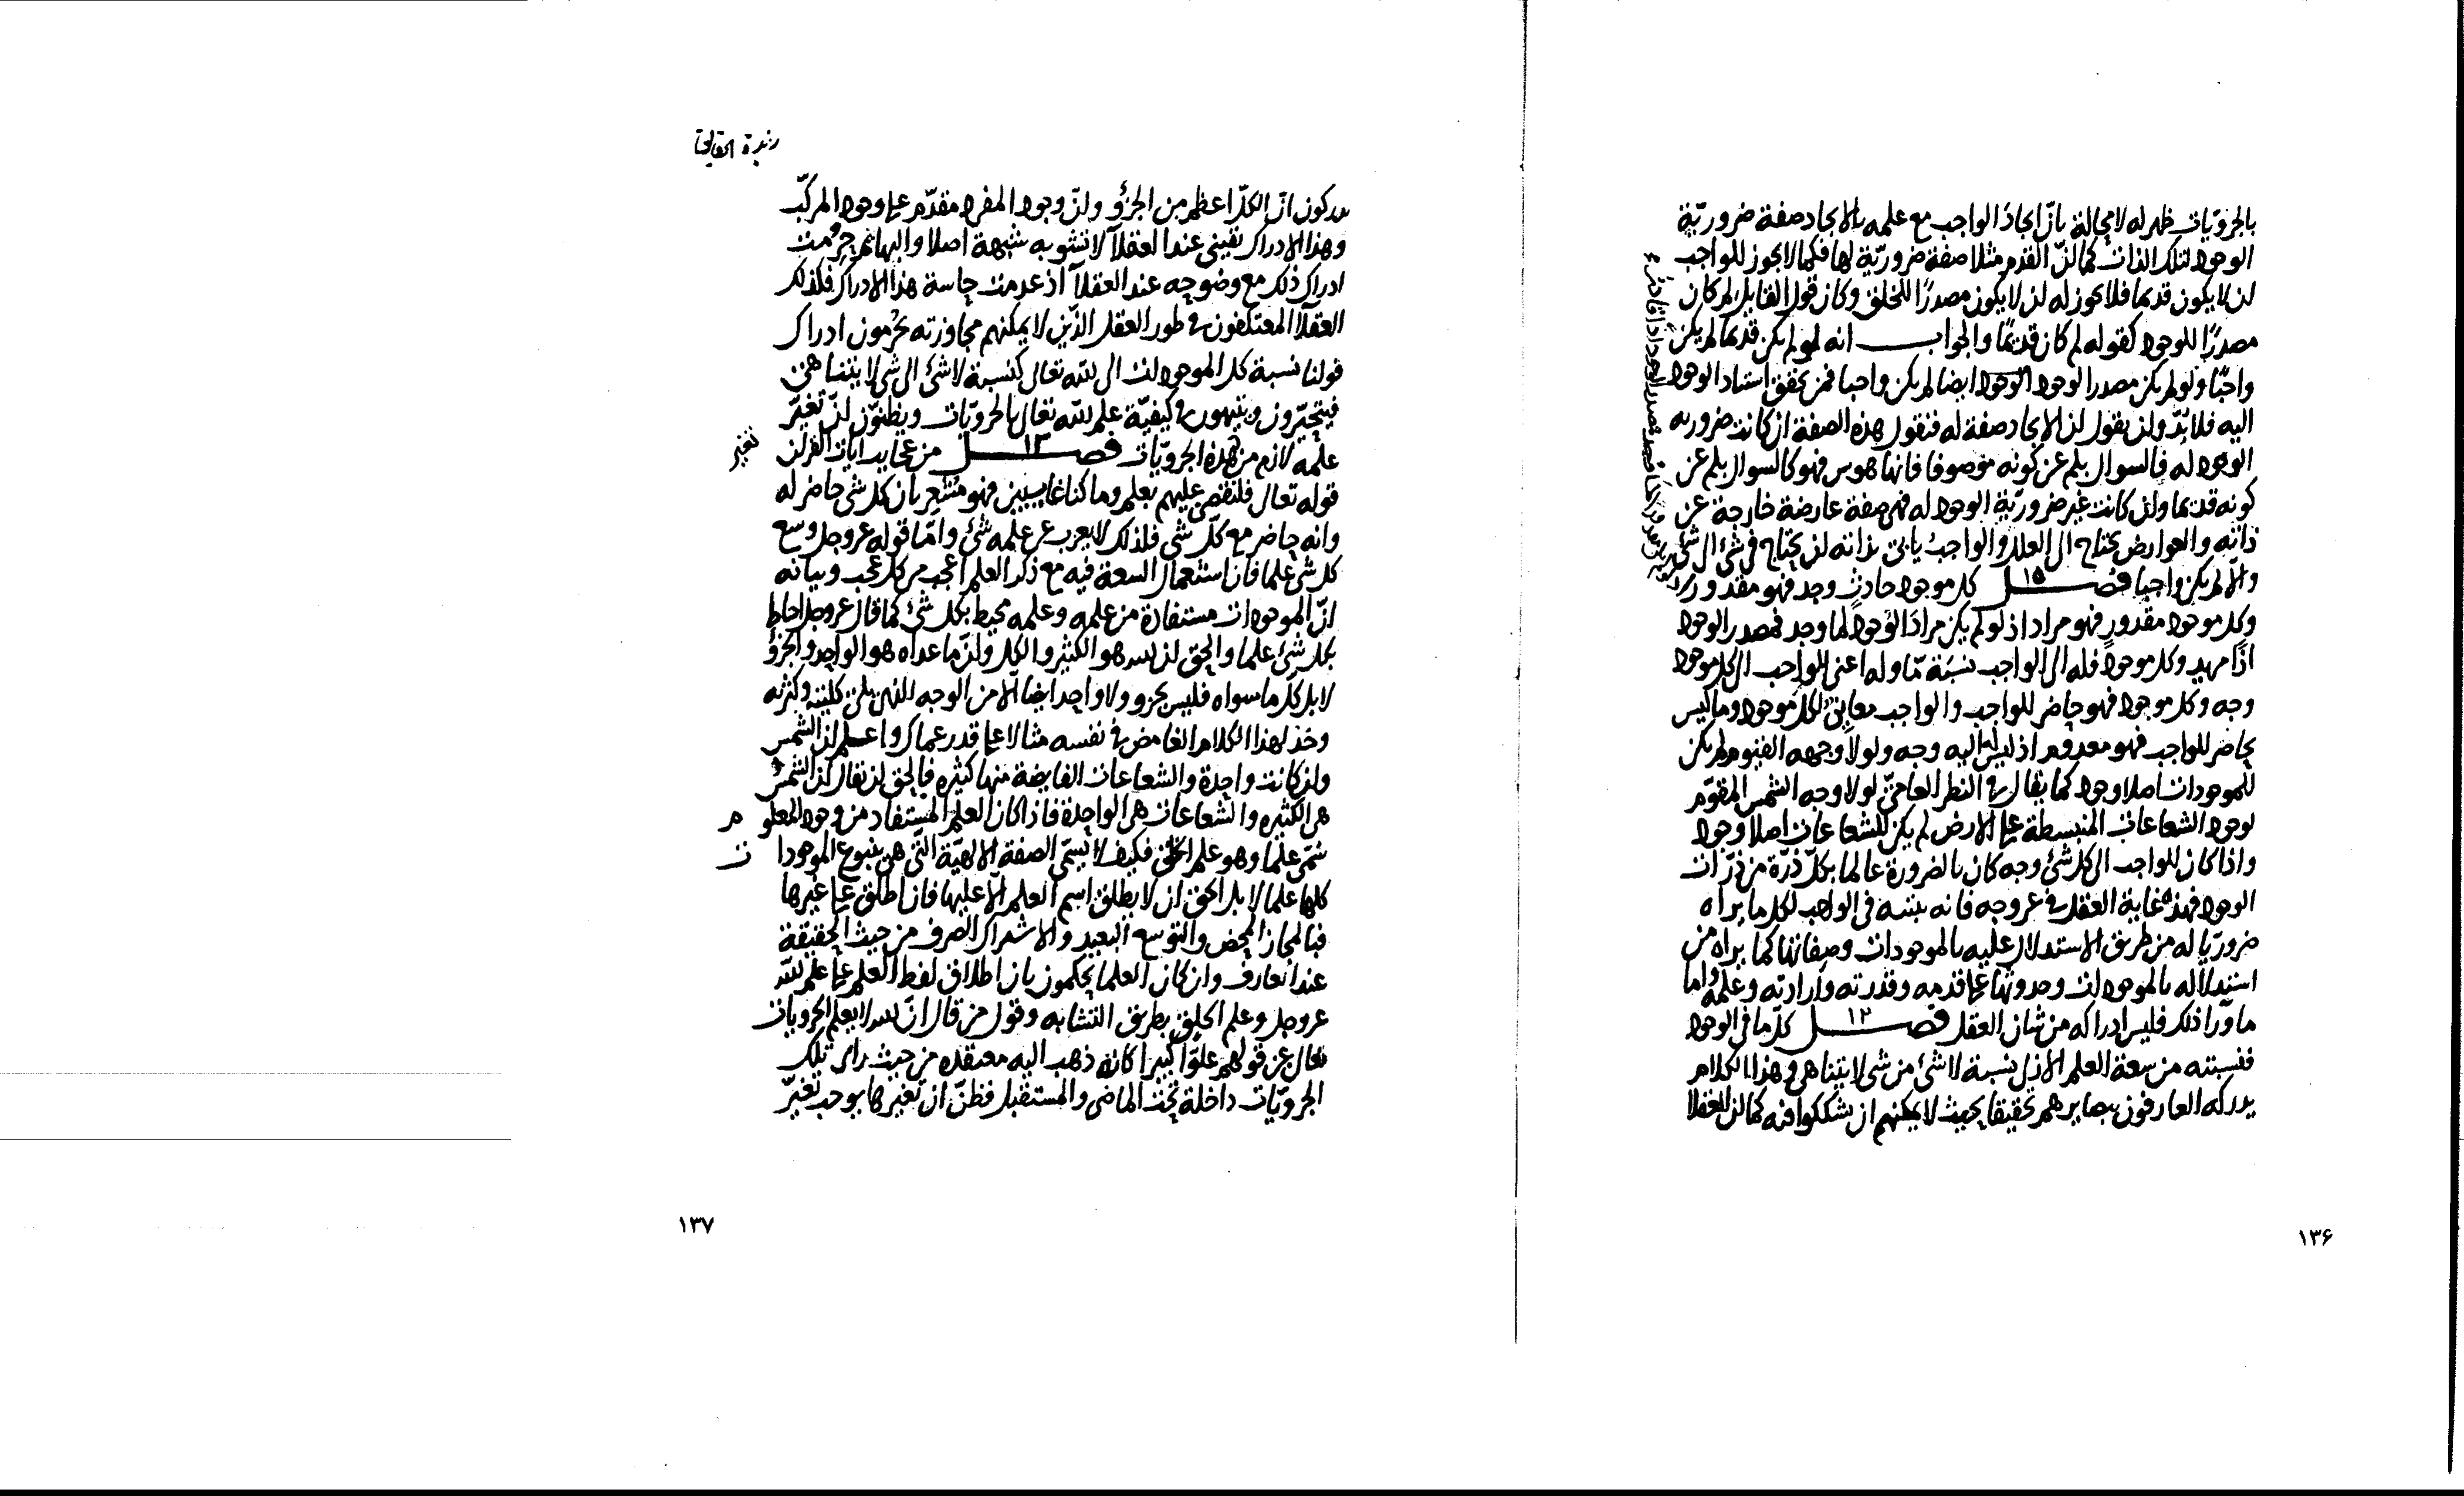 بالجزويّات ظهر له لا محالة بانّ ايجاد الواجب مع علمه بالايجاد صفة ضروريّة
الوجود لتلك الذات كما انّ القدم مثلا صفة ضروريّة لها فكما لا يجوز للواجب
ان لا يكون قديما فلا يجوز له ان لا يكون مصدرًا للخلق وكان قول القايل لم كان
مصدرًا للوجود كقوله لم كان قديمًا والجواب انه لو لم يكن قديما لم يكن
واجبًا ولو لم يكن مصدر الوجود ايضا لم يكن واجبا فمن تحقق استناد الوجود
اليه فلا بدّ وان يقول ان الايجاد صفة له فنقول هذه الصفة ان كانت ضرورية
الوجود له فالسوال بلم عن كونه موصوفا فانها هوس فهو كالسوال بلم عن
كونه قديما وان كانت غير ضروريّة الوجود له فهى صفة عارضة خارجة عن
ذاته والعوارض يحتاج الى العلل والواجب يابى بذاته ان يحتاج فى شئ الى شئ
والّا لم يكن واجبا فصل ١٥ كل موجود حادث وجد فهو مقدور
وكل موجود مقدور فهو مراد اذ لو لم يكن مرادَ الوجود لما وجد فمصدر الوجود
اذًا مريد وكل موجود فله الى الواجب نسبَة مّا وله اعنى الواجب الى كل موجود
وجه وكل موجود فهو حاضر للواجب والواجب معاين لكل موجود وما ليس
بحاضر للواجب فهو معدوم اذ ليس له اليه وجه ولولا وجهه القيوم لم يكن
للموجودات اصلا وجود كما يقال فى النظر العامىّ لولا وجه الشمس المقوّم
لوجود الشعاعات المنبسطة على الارض لم يكن للشعاعات اصلا وجود
واذا كان للواجب الى كل شئ وجه كان بالضرورة عالما بكلّ ذرّة من ذرّات
الوجود فهذه غاية العقل فى عروجه فانه يثبته فى الواجب لكل ما يراه
ضروريّا له من طريق الاستدلال عليه بالموجودات وصفاتها كما يراه من
استدلاله بالموجودات وحدوثها على قدمه وقدرته وارادته وعلمه واما
ما ورآ ذلك فليس ادراكه من شان العقل فصل ١٢ كلّ ما فى الوجود
فنسبته من سعة العلم الازلى نسبة لا شئ من شئ لا يتناهى وهذا الكلام
يدركه العارفون ببصايرهم تحقيقا بحيث لا يمكنهم ان يشككوا فيه كما ان العقلا
١٣۶
زبدة الحقايق
يدركون انّ الكلّ اعظم من الجزؤ وانّ وجود المفرد مقدّم على وجود المركّب
وهذا الادراك يقينى عند العقلآ لا تشوبه شبهة اصلا والبهايم حرمت
ادراك ذلك مع وضوحه عند العقلآ اذ عدمت حاسة هذا الادراك فكذلك
العقلآ المعتكفون فى طور العقل الذين لا يمكنهم مجاوزته يحرمون ادراك
قولنا نسبة كل الموجودات الى الله تعالى كنسبة لا شئ الى شئ لا يتناهى
فيتحيّرون ويتيهون فى كيفيّة علم الله تعالى بالجزويّات ويظنّون انّ تغيّر
علمه لازم من هذه الجزويّات فصل ١٣ من عجايب ايات القران
تغير
قوله تعالى فلنقصن عليهم بعلم وما كنا غايبين فهو مشعر بان كل شئ حاضر له
وانه حاضر مع كلّ شئ فلذلك لا يعزب عن علمه شئ وامّا قوله عز وجل وسع
كل شئ علما فان استعمال السعة فيه مع ذكر العلم اعجب من كل عجب وبيانه
انّ الموجودات مستفادة من علمه وعلمه محيط بكل شئ كما قال عز وجل احاط
بكل شئ علما والحق ان الله هو الكثير والكل وانّ ما عداه هو الواحد والجزؤ
لا بل كلّ ما سواه فليس بجزو ولا واحد ايضا الّا من الوجه الذى يلى كليته وكثرته
وخذ لهذا الكلام الغامض فى نفسه مثالا على قدر عماك واعلم ان الشمس
وان كانت واحدة والشعاعات الفايضة منها كثيره فالحق ان يقال ان الشمس
هى الكثيره والشعاعات هى الواحدة فاذا كان العلم المستفاد من وجود المعلوم
سُمّى علما وهو علم الخلق فكيف لا يُسمّى الصفة الالهيّة التى هى ينبوع الموجودات
كلها علما لا بل الحق ان لا يطلق اسم العلم الّا عليها فان اطلق على غيرها
فبالمجاز المحض والتوسع البعيد والاشتراك الصرف من حيث الحقيقة
عند العارف وان كان العلما يحكمون بان اطلاق لفظ العلم على علم الله
عز وجل وعلم الخلق بطريق التشابه وقول من قال انّ الله لا يعلم الجزويات
تعالى عن قولهم علوّا كبيرا كانه ذهب اليه معتقده من حيث راى تلك
الجزويّات داخلة تحت الماضى والمستقبل فظنّ ان تغيرها يوجب تغيّر
١٣٧